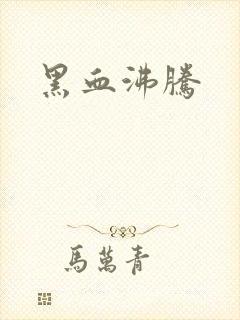 黑血沸騰
馬萬青